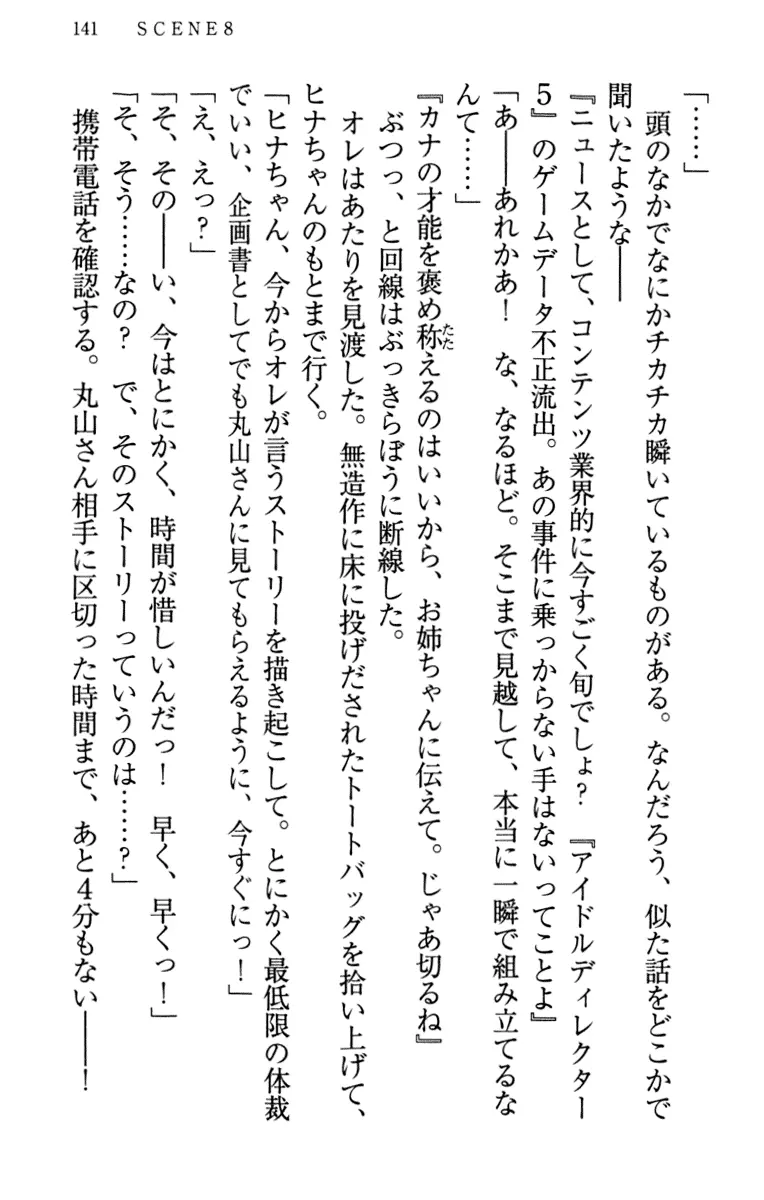 141 SCENE8
「……」
　頭のなかでなにかチカチカ瞬いているものがある。なんだろう、似た話をどこかで
聞いたような――
『ニュースとして、コンテンツ業界的に今すごく旬でしょ？　『アイドルディレクター
5』のゲームデータ不正流出。あの事件に乗っからない手はないってことよ』
「あ――あれかあ！　な、なるほど。そこまで見越して、本当に一瞬で組み立てるな
んて……」
『カナの才能を褒め称えるのはいいから、お姉ちゃんに伝えて。じゃあ切るね』
　ぶつっ、と回線はぶっきらぼうに断線した。
　オレはあたりを見渡した。無造作に床に投げだされたトートバッグを拾い上げて、
ヒナちゃんのもとまで行く。
「ヒナちゃん、今からオレが言うストーリーを描き起こして。とにかく最低限の体裁
でいい、企画書としてでも丸山さんに見てもらえるように、今すぐにっ！」
「え、えっ？」
「そ、その――い、今はとにかく、時間が惜しいんだっ！　早く、早くっ！」
「そ、そう……なの？　で、そのストーリーっていうのは……？」
　携帯電話を確認する。丸山さん相手に区切った時間まで、あと4分もない――！